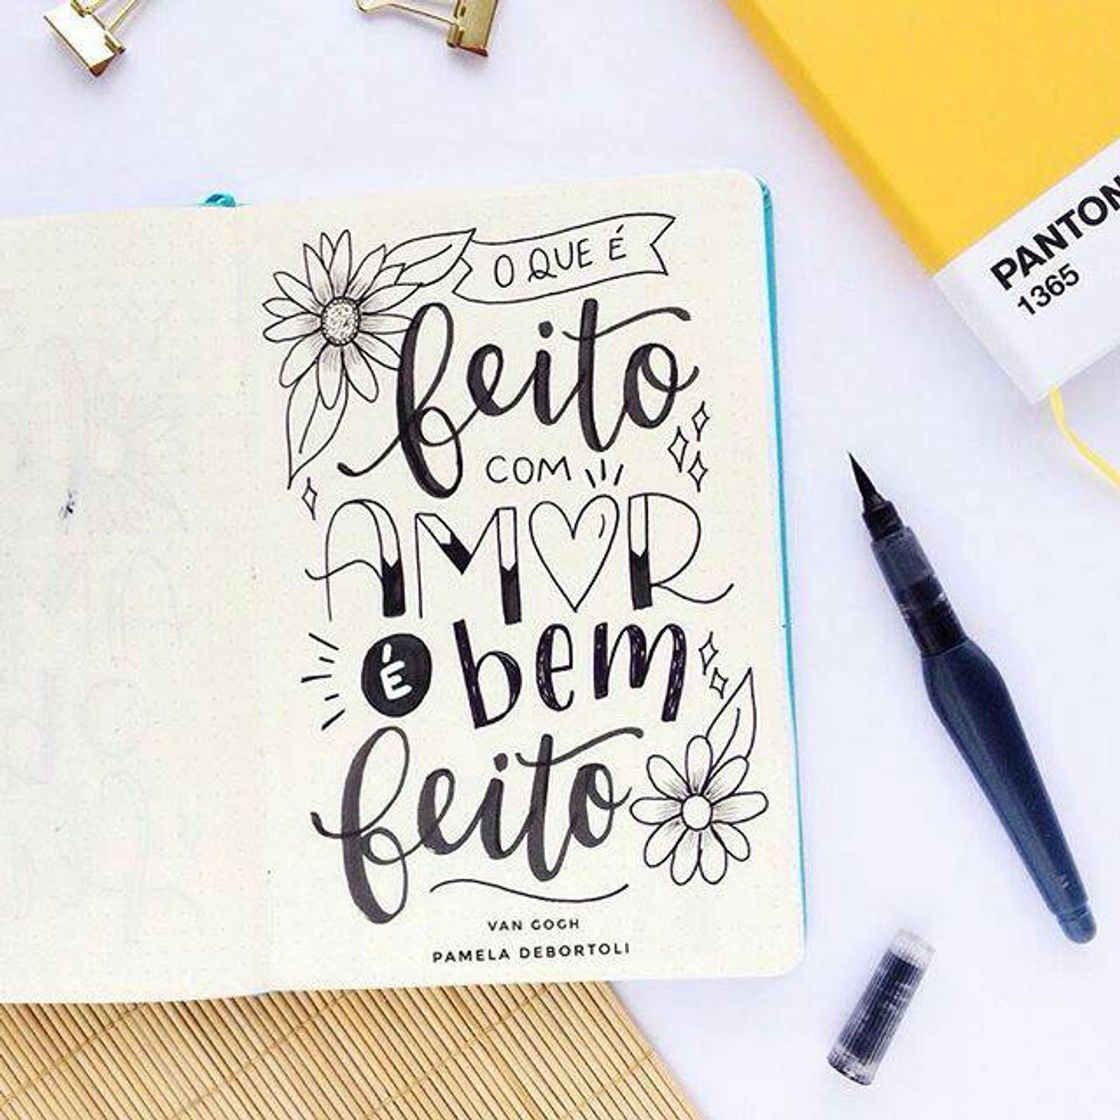 O QUE É
feito
COM
AMOR
É bem
feito
VAN GOGH
PAMELA DEBORTOLI
PANTON
1365